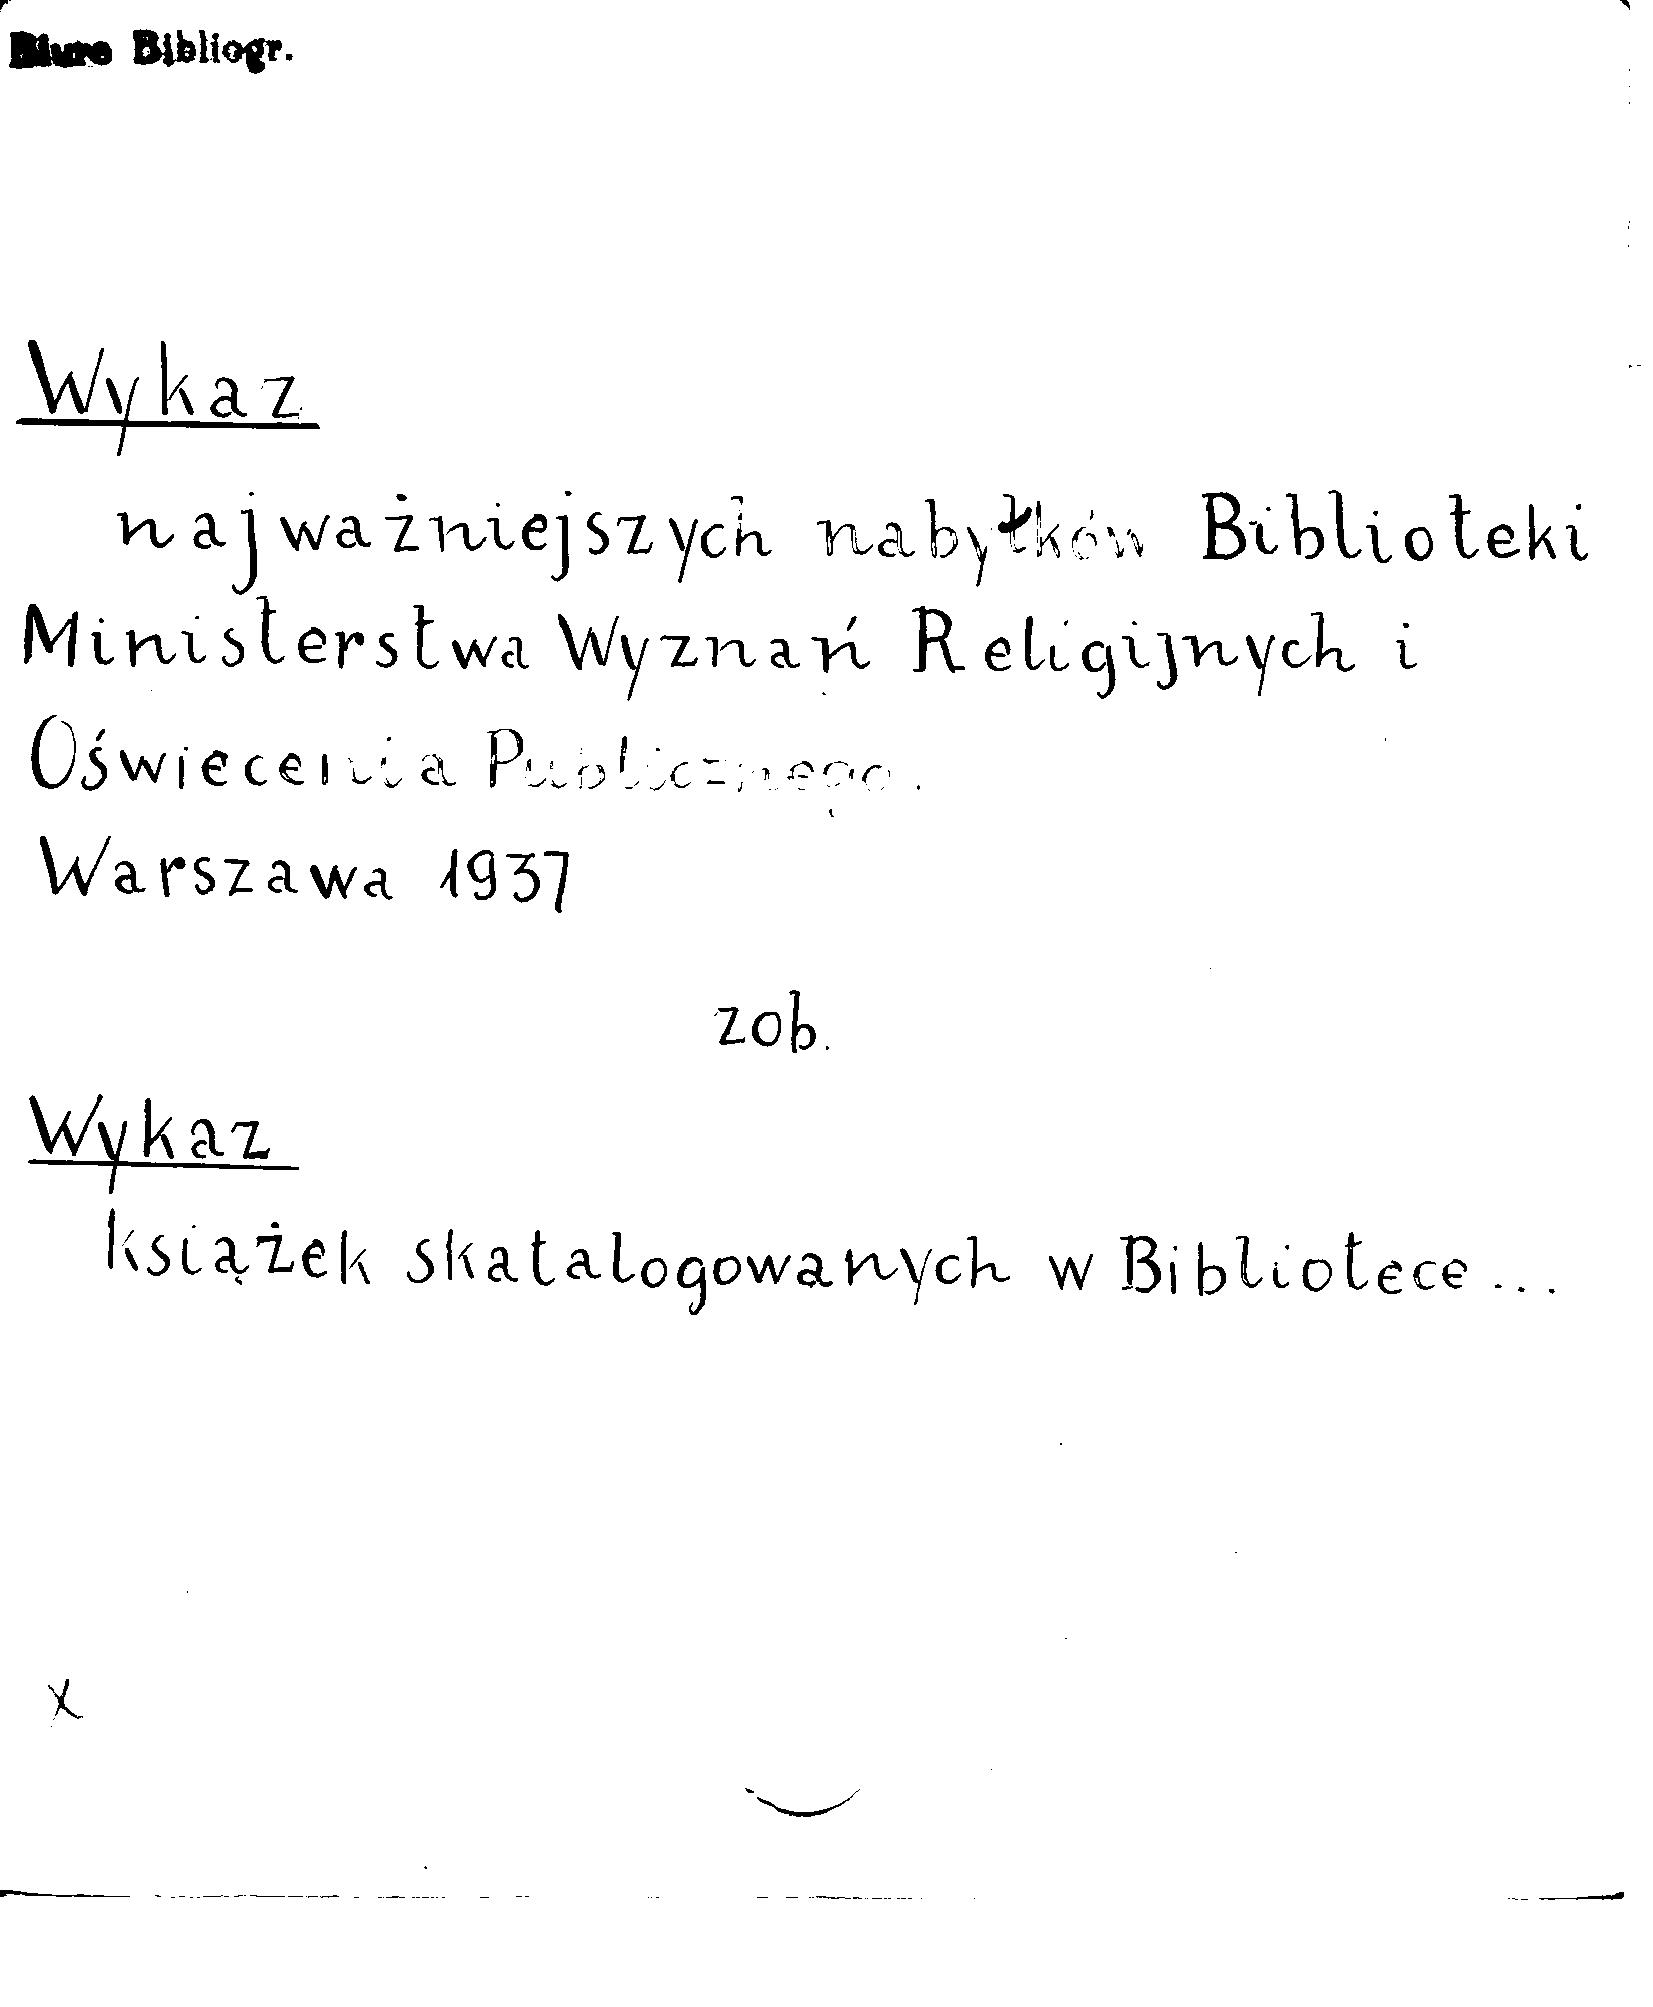 Biuro Bibliogr.
Wykaz
najważniejszych nabytków Biblioteki
Ministerstwa Wyznań Religijnych i
Oświecenia Publicznego.
Warszawa 1937
zob.
Wykaz
książek skatalogowanych w Bibliotece...
x